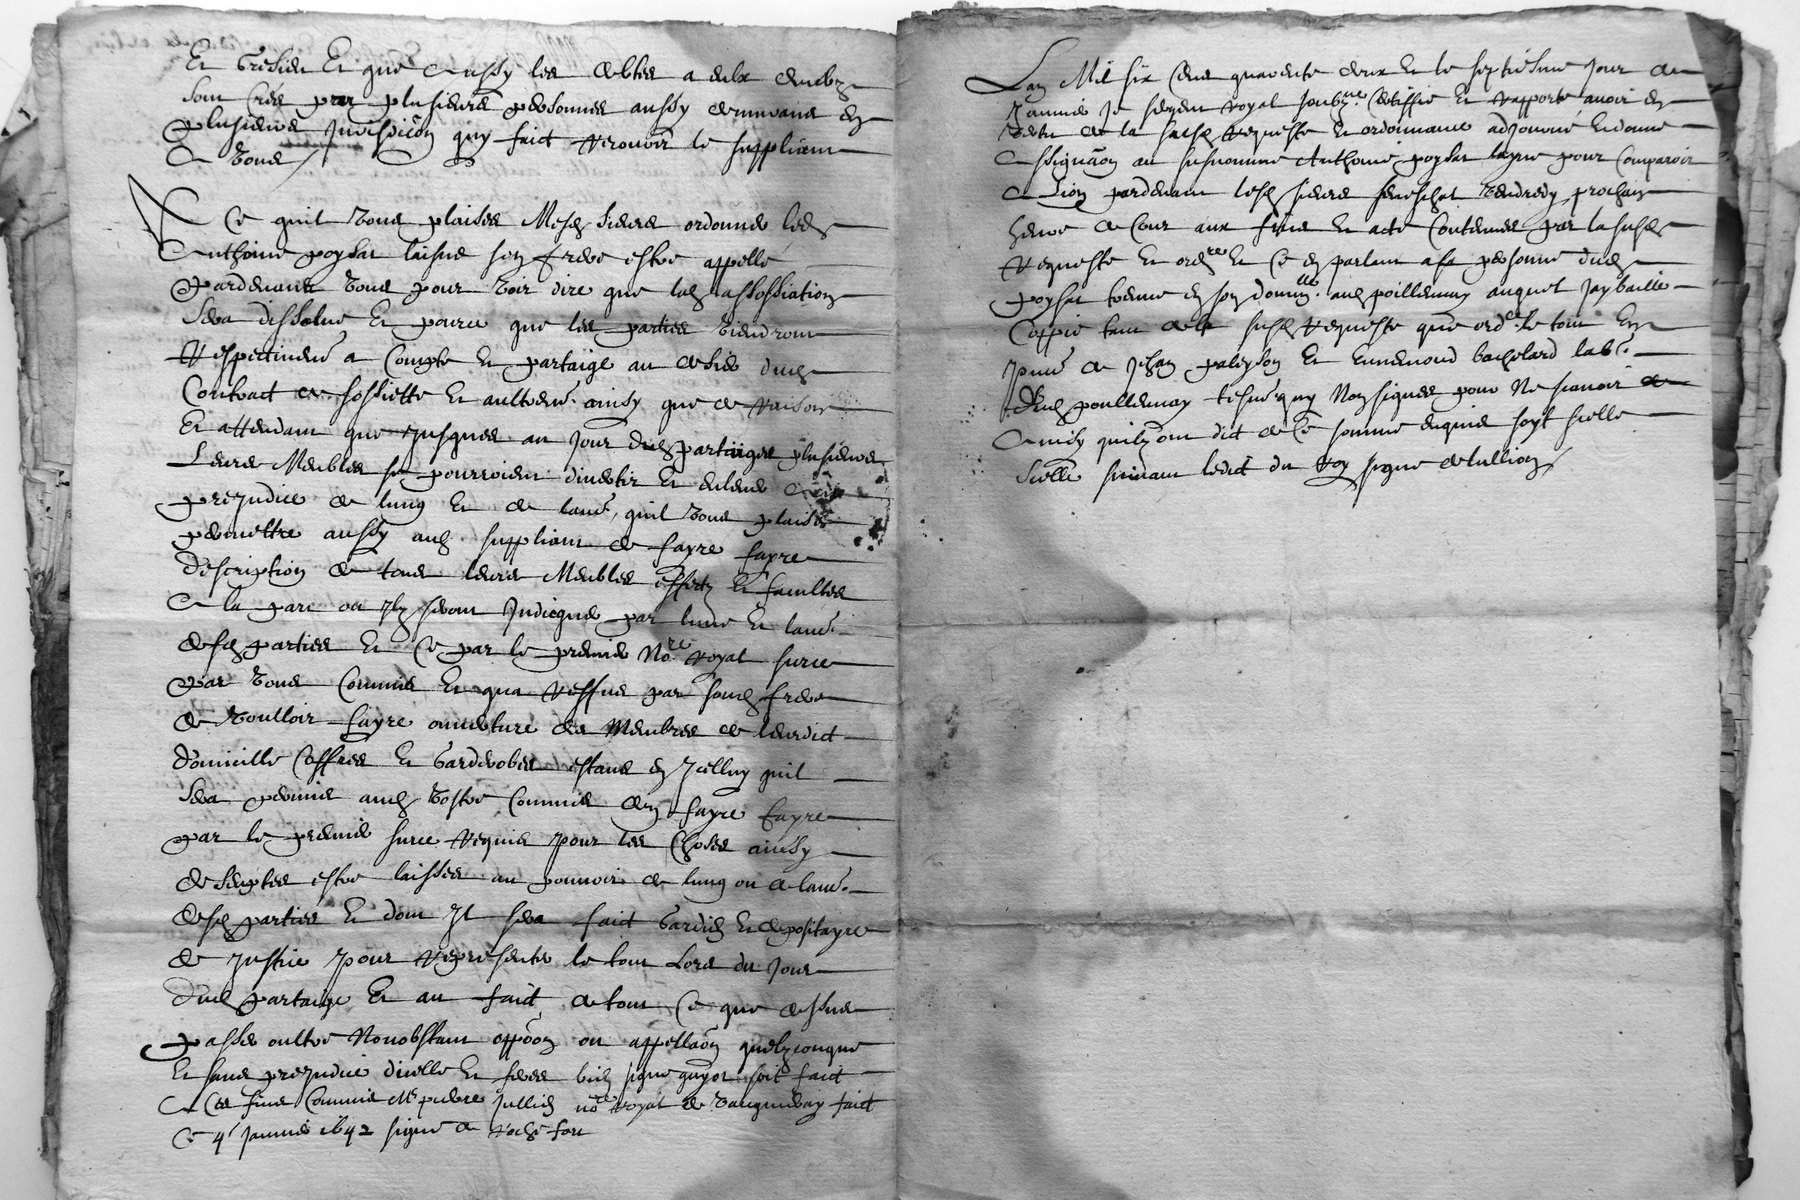 Et Gresieu Et que aussy les debtes a eulx deubz
sont crees par plusieurs personnes aussy demeurans en
plusieurs jurisdicõn quy faict recourir le suppliant
a vous /
A Ce quil vous plaise Mesd sieurs ordonner led
Anthoine poysat laisne son frere estre appelle
Pardevant vous pour voir dire que lad assossiation
sera dissolue Et parce que les parties viendront
Respectivemt a compte Et partaige au desir dud
Contract de sossiette Et aultremt ainsy que de raison
Et attendant que jusques au jour dud partaige plusieurs
Leurs Meubles se pourroient divertir Et enlever au
prejudice de lung Et de laue, quil vous plaise
permettre aussy aud suppliant de fayre fayre
description de tous leurs Meubles effectz Et facultes
a la part ou Ilz seront Indicques par lune Et laue
desd parties Et Ce par le premier Nore Royal sur ce
par vous Commis Et qua reffus par sond frere
de voulloir fayre ouverture des Membres de leurdict
domicille Coffres Et Garderobes estans en Icelluy quil
sera permis aud vostre Commis den fayre fayre
par le premier sur ce requis pour les choses ainsy
descriptes estre laisses au pouvoir de lung ou de laue
desd parties Et dont Il sera faict Gardien Et depositayre
de justice pour representer le tout Lors du jour
dud partaige Et au faict de tout Ce que dessus
passer oultre Nonobstant oppõon ou appellaõn quelzconque
Et sans prejudice dicelle Et feres bien signe guyot soit faict
a Ces fins Commis Me pierre Jullien nore Royal de vaugneray faict
Ce 4e Janvier 1642 signe de rochefort
Lan Mil six cens quarente deux Et le septiesme jour de
Janvier Je sergen royal soubzne Certiffie Et rapporte avoir en
vertu de la susd requeste Et ordonnance adjourné Et donné
assignaõn au susnomme Anthoine poysat layne pour Comparoir
a Lion pardevant lesd sieurs seneschal vendredy prochain
heure de Cour aux fins Et acte Contenues par la susd
requeste Et ordre Et Ce en parlant a sa personne dud
poysat treuve en son domille aud poillenay auquel jay baille
Coppie tant de la susd requeste que ordce le tout En
pnce de Jehan paleyson Et Ennemond bachelard labrs
dud poullenay tesmt quy Non signes pour Ne scavoir de
ainsy quilz ont dict de Ce sommé enquis soyt scelle
scelle suivant ledict du roy signe detullion